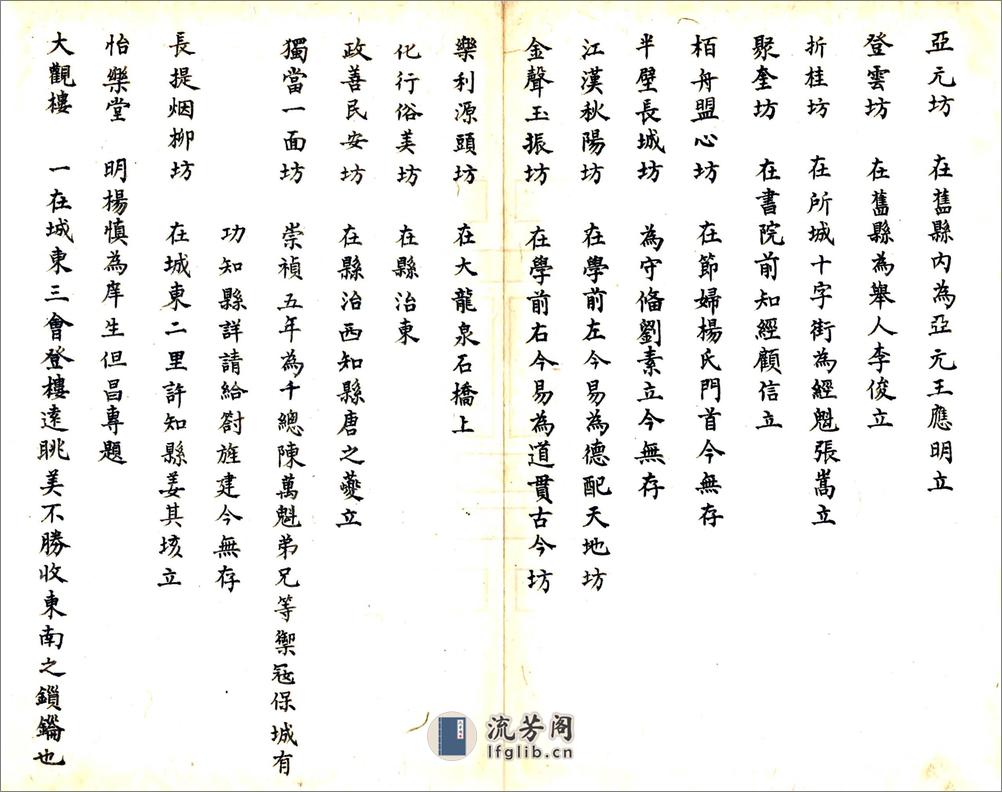 亞元坊　在舊縣內為亞元王應明立
登雲坊　在舊縣為舉人李俊立
折桂坊　在所城十字街為經魁張嵩立
聚奎坊　在書院前知經顧信立
栢舟盟心坊　在節婦楊氏門首今無存
半壁長城坊　為守備劉素立今無存
江漢秋陽坊　在學前左今易為德配天地坊
金聲玉振坊　在學前右今易為道貫古今坊
樂利源頭坊　在大龍泉石橋上
化行俗美坊　在縣治東
政善民安坊　在縣治西知縣唐之夔立
獨當一面坊　崇禎五年為千總陳萬魁弟兄等禦冦保城有
功知縣詳請給劄旌建今無存
長提烟柳坊　在城東二里許知縣姜其垓立
怡樂堂　明楊慎為庠生但昌專題
大觀樓　一在城東三會登樓遠眺美不勝收東南之鎖鑰也
流芳阁
lfglib.cn